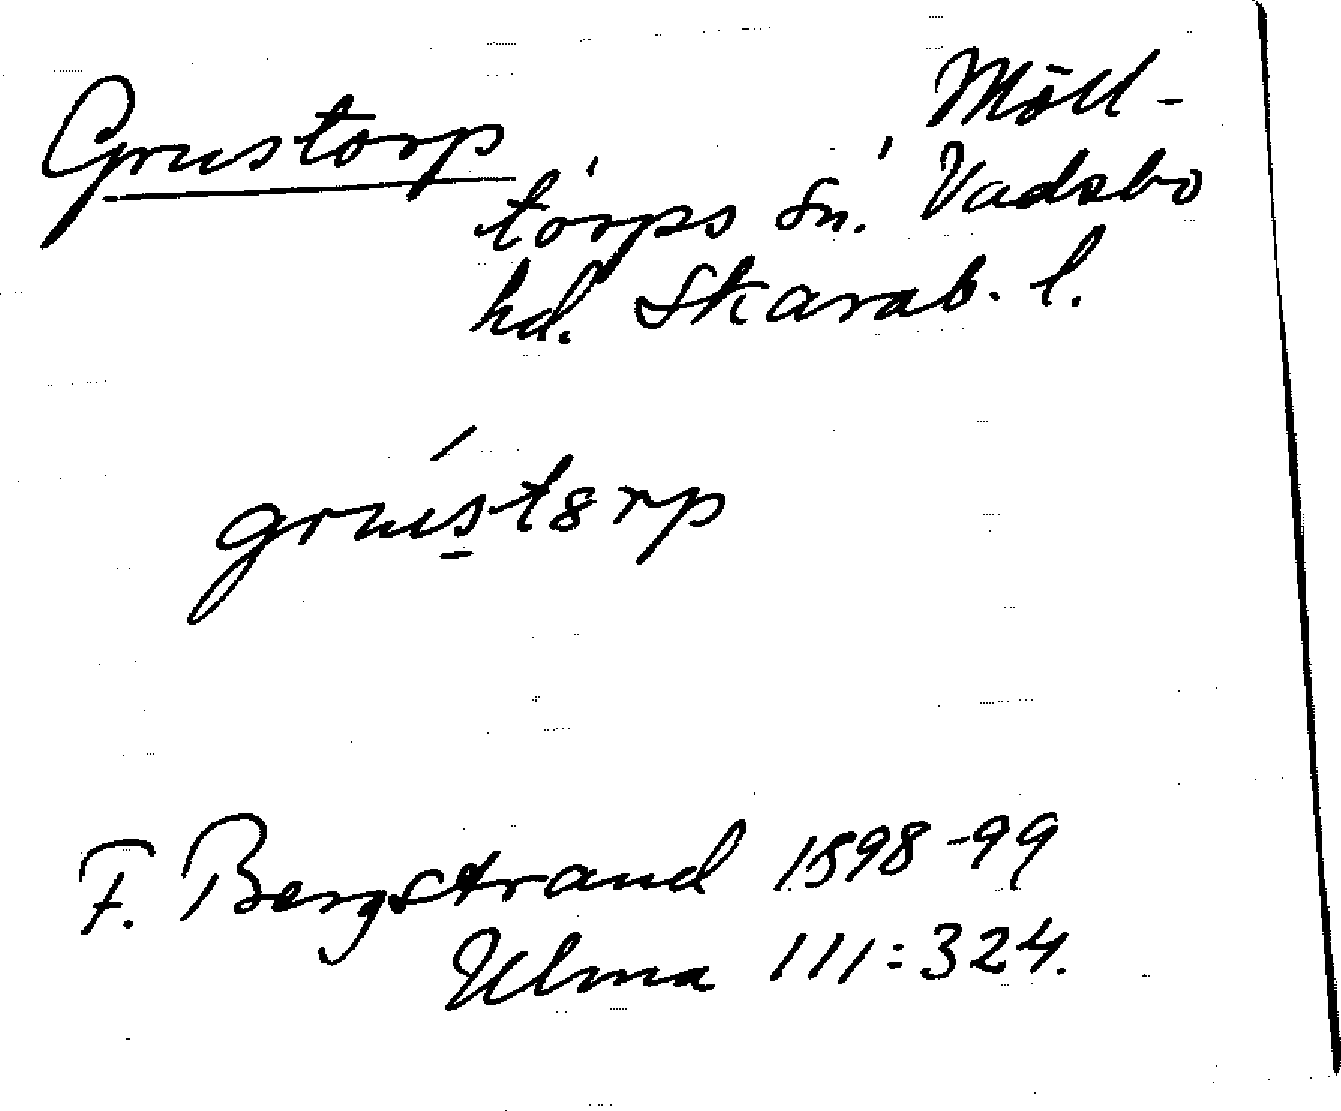 Grustorp Möll-
torps sn. Vadsbo
hd. Skarab. l.
grustorp
F. Bergstrand 1898-99
Ulma 111:324.